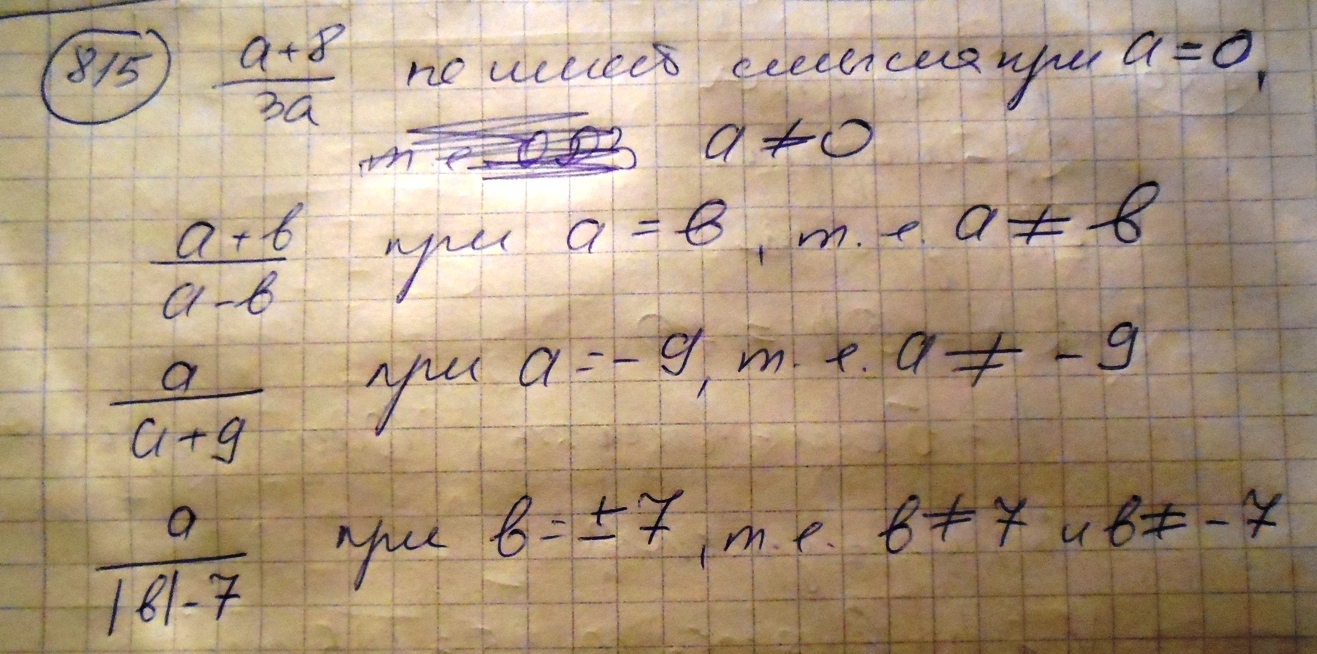 815 (a+8)/(3a) не имеет смысла при a = 0,
т е a ≠ 0
(a+b)/(a-b) при a = b, т. е. a ≠ b
a/(a+9) при a = -9, т. е. a ≠ -9
a/(|b|-7) при b = ±7, т. е. b ≠ 7 и b ≠ -7